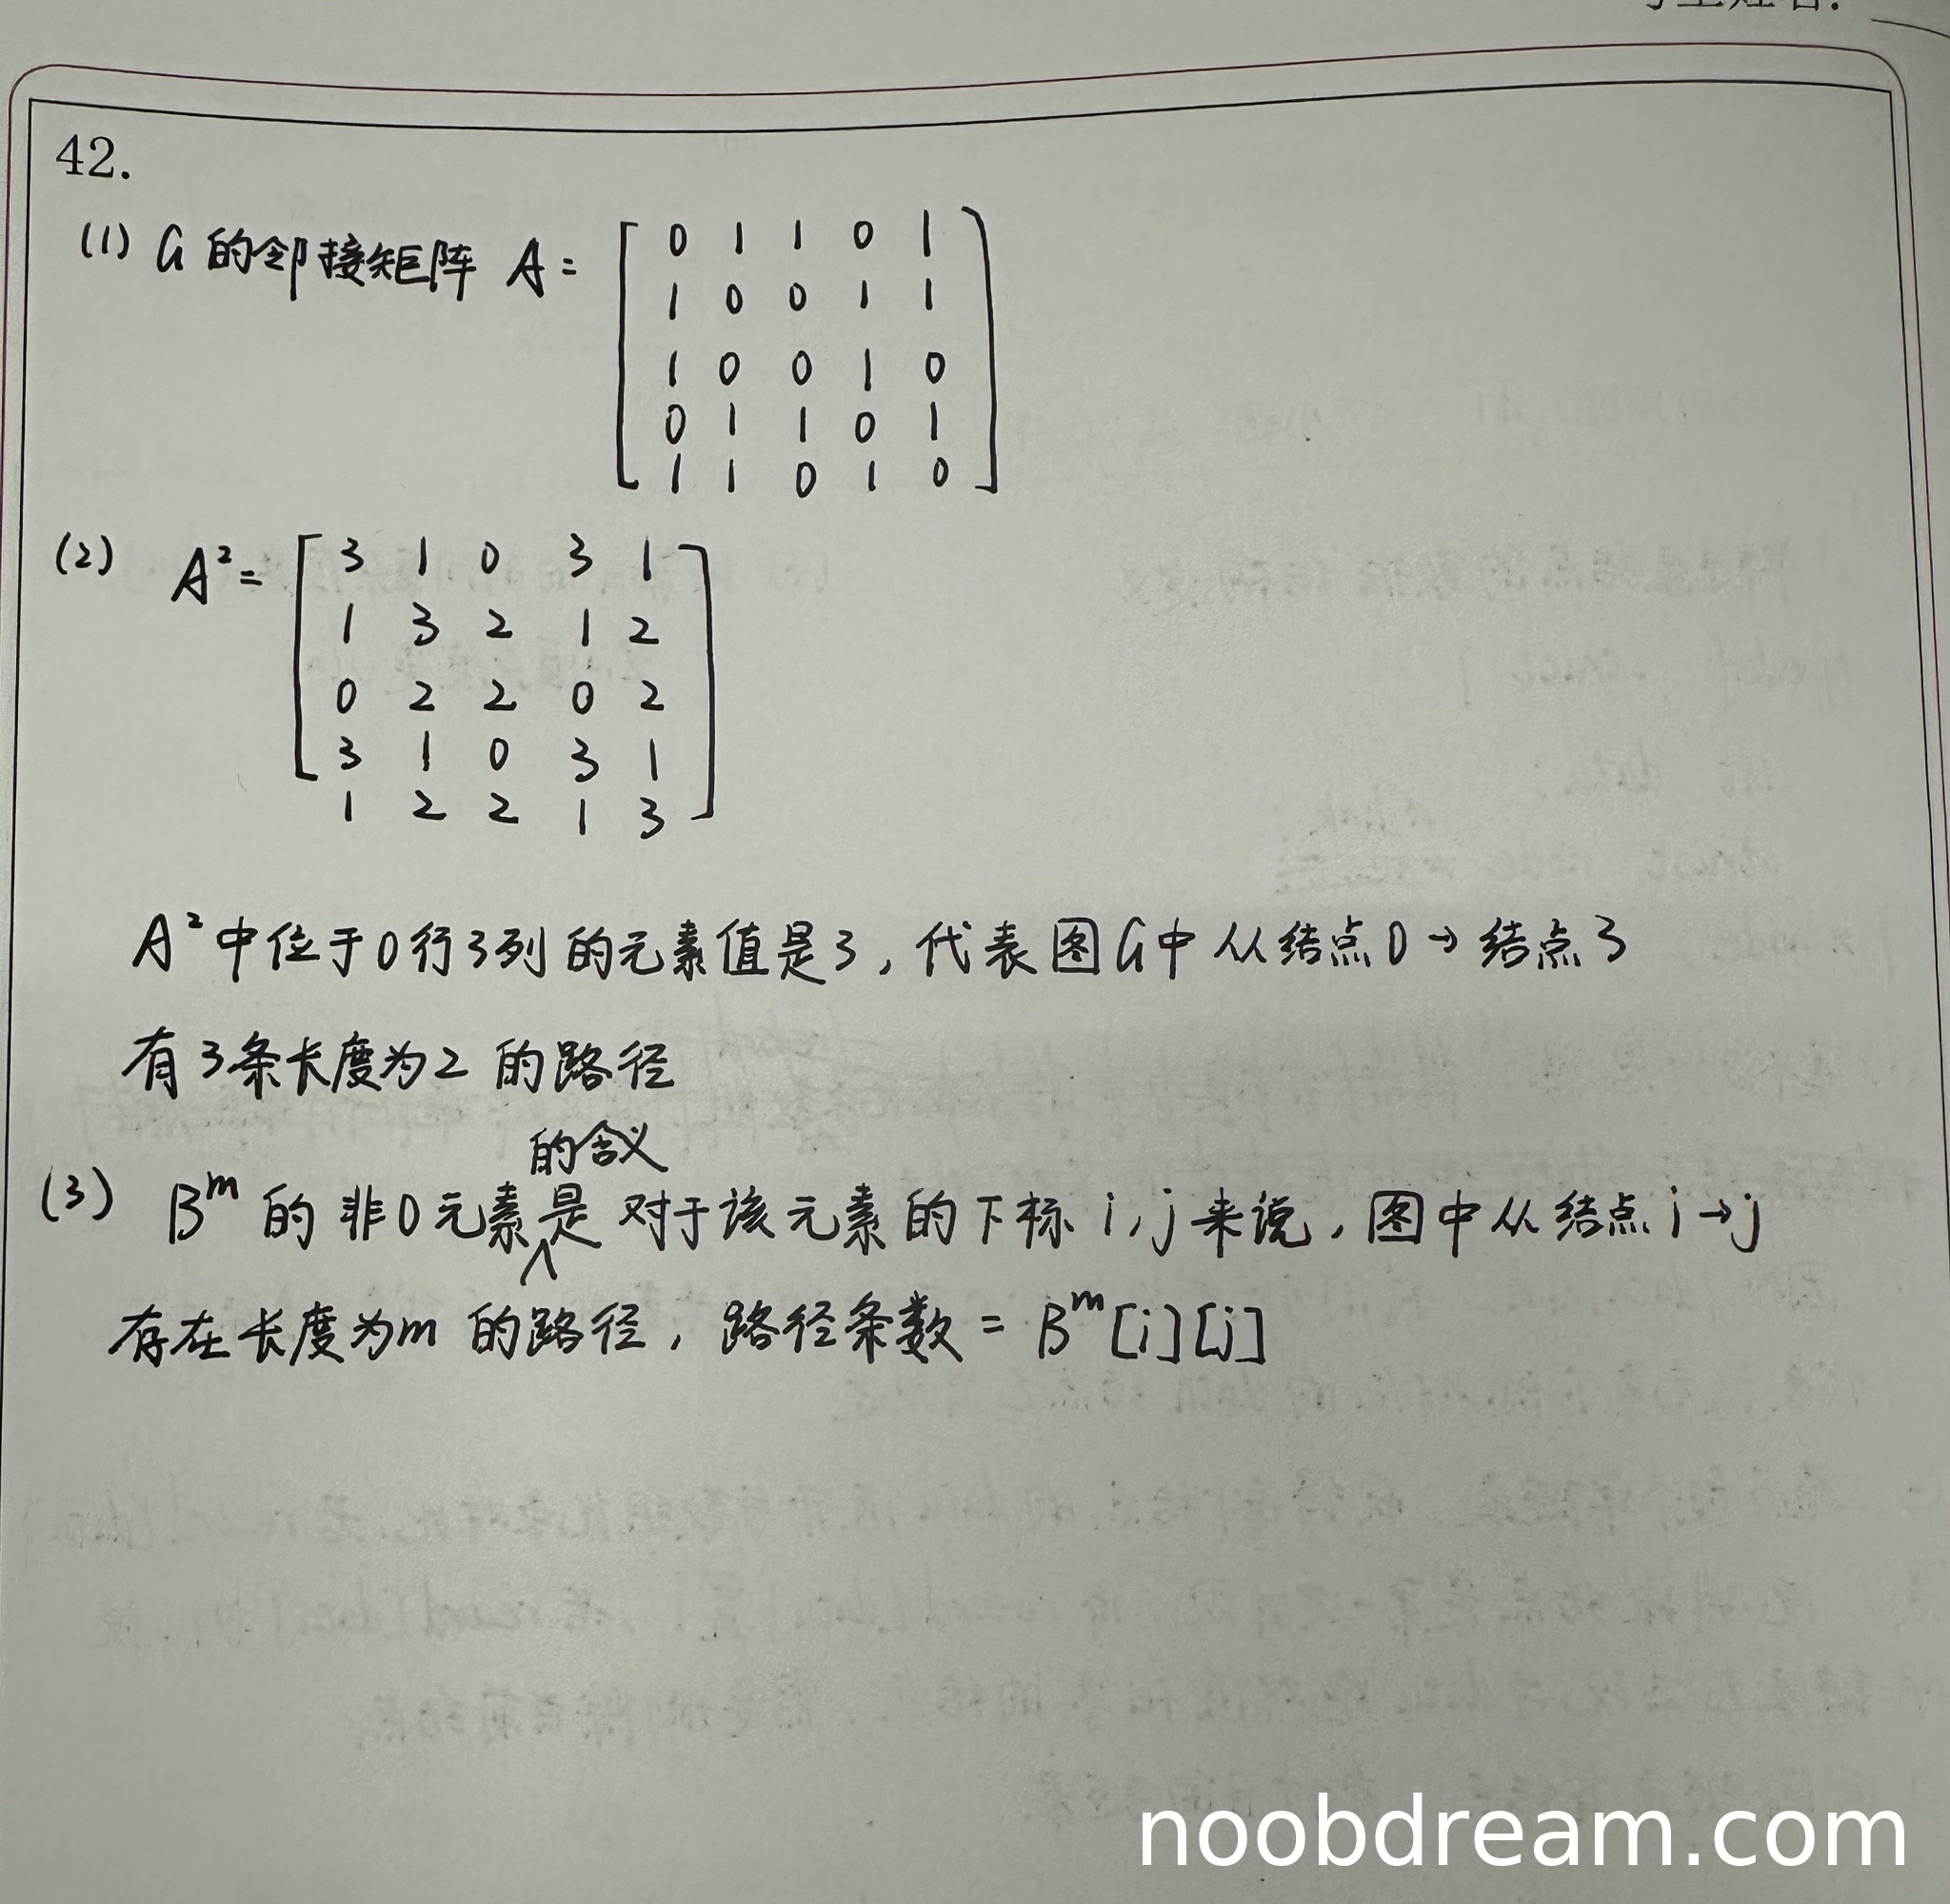 42.
(1) G 的邻接矩阵 A =
0 1 1 0 1
1 0 0 1 1
1 0 0 1 0
0 1 1 0 1
1 1 0 1 0
(2) A² =
3 1 0 3 1
1 3 2 1 2
0 2 2 0 2
3 1 0 3 1
1 2 2 1 3
A² 中位于0行3列的元素值是3, 代表图G中从结点0→结点3
有3条长度为2的路径
的含义
(3) Bᵐ 的非0元素是对于该元素的下标 i, j 来说, 图中从结点 i→j
存在长度为m的路径, 路径条数 = Bᵐ[i][j]
noobdream.com